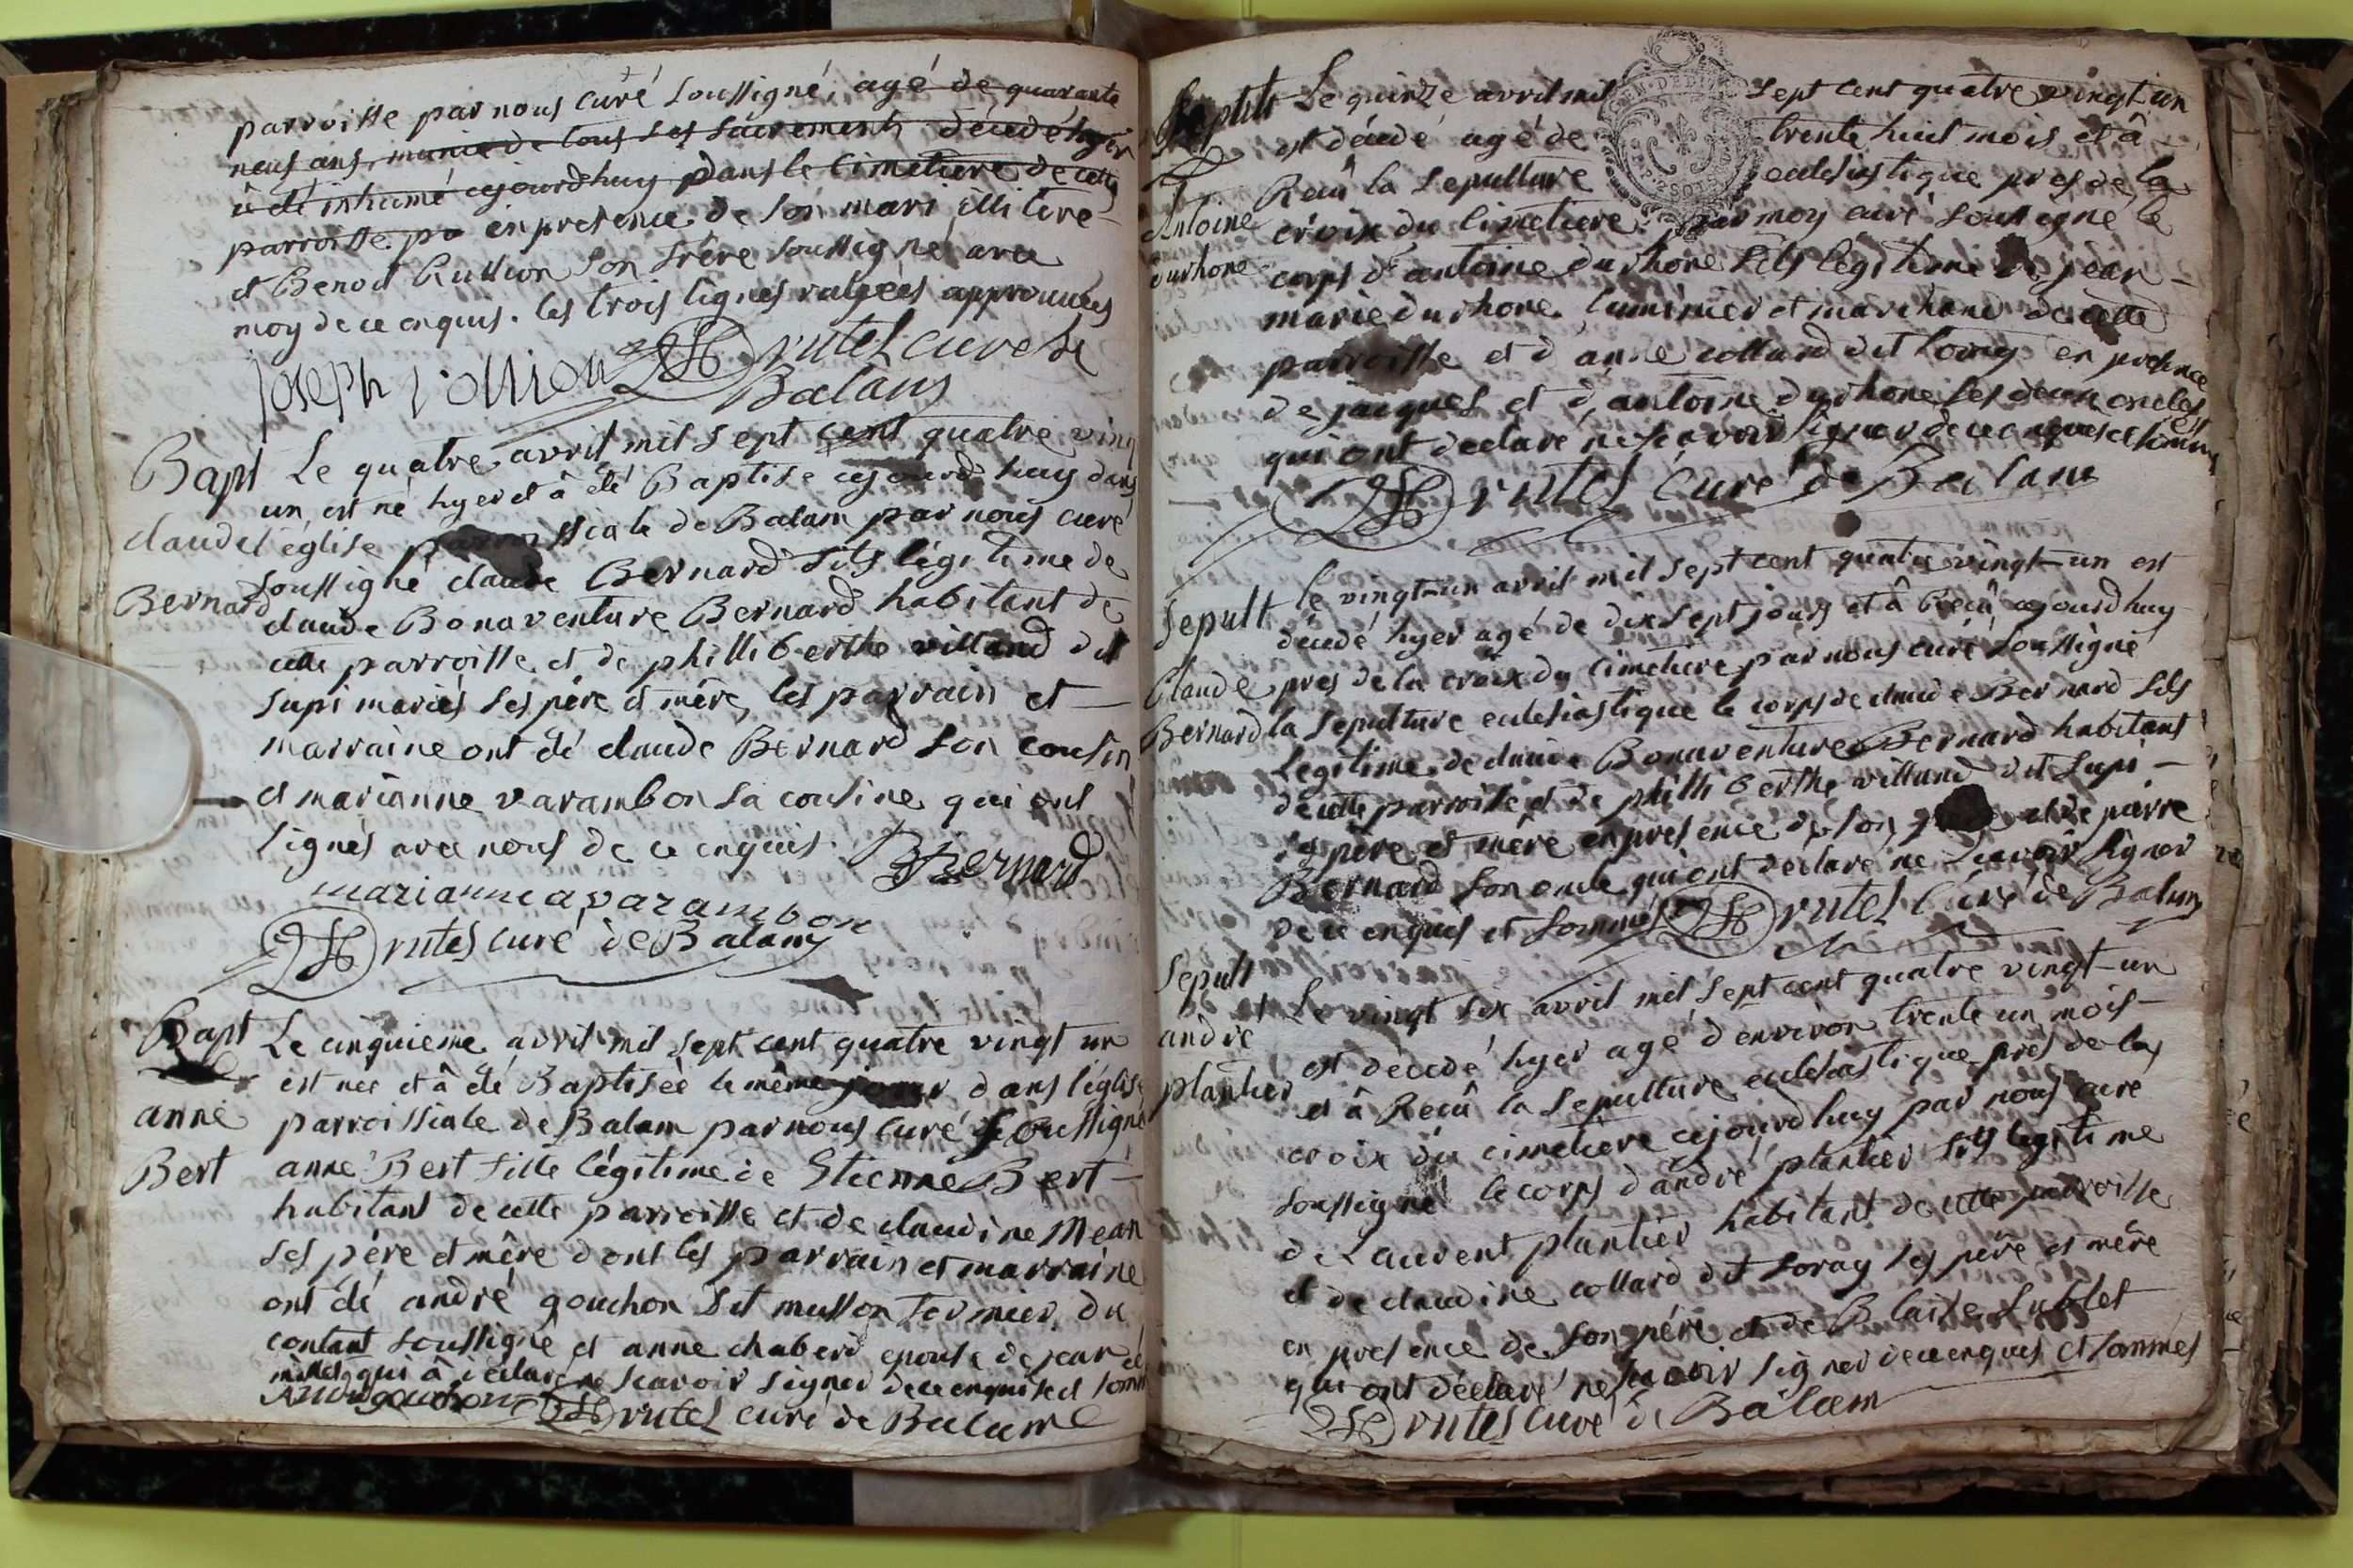 parroisse par nous curé soussigné, agé de quarante
neuf ans, munie de tous ses sacrements décédé hyer
à été inhumé ajourdhuy dans le cimetiere de cette
parroisse pa en presence de son mari illiteré
et Benoit Rullion son frére soussigné avec
moy de ce enquis. les trois lignes raiyées approuvées
Joseph rutel curé de
Balans
Bapt Le quatre avril mil sept cent quatre ving
un est né hyer et à été Baptisé ajourdhuy dans
claude l'église parroissiale de Balam par nous curé
soussigné claude Bernard fils légitime de
Bernard claude Bonaventure Bernard habitant de
cette parroisse et de phillïberthe villand dit
supi mariés ses pére et mére, les parrain et
marraine ont été claude Bernard son cousin
et marianne varambon sa cousine qui ont
signés avec nous de ce enquis. Bernard
marianne a varambon
rutel curé de Balam
Bapt Le cinquieme avril mil sept cent quatre vingt un
est née et à été Baptisée le même jour dans l'église
anne parroissiale de Balam par nous curé soussigné
Bert anne Bert fille légitime de Etienne Bert
habitant de cette parroisse et de claudine Mean
ses pére et mére dont les parrain et marraine
ont été andré gouchon dit musson fermier du
contant soussigné et anne chaberd epouse de jean
qui à déclaré ne scavoir signer de ce enquise et somm
rutel curé de Balam
Septlt Le quinze avril mil sept cent quatre vingt un
est décédé agé de trente huit mois et à
Reçû la sepulture ecclesiastique pres de la
Antoine croix du cimetiere par moy curé soussigné le
durhone corps d'antoine durhone fils légitime de jean
marie durhone luminier et marchand de cette
parroisse et d'anne collard dit loray en presence
de jacques et d'antoine durhone ses deux oncles
qui ont declaré ne scavoir signer de ce enquis et sommés
rutel Curé de Balam
Sepult le vingt-un avril mil sept cent quatre vingt-un est
décédé hyer agé de dix sept jours et à Reçû ajourdhuy
Claude pres de la croix du cimetiere par nous curé soussigné
Bernard la sepulture ecclesiastique le corps de claude Bernard fils
Legitime de claude Bonaventure Bernard habitant
de cette parroisse et de phillïberthe villand dit supi
ses pére et mére en presence de son et de pierre
Bernard son oncle qui ont declaré ne scavoir signer
de ce enquis et sommés rutel Curé de Balam
Sepult
Le vingt six avril mil sept cent quatre vingt-un
andré est décédé hyer agé d'environ trente un mois
plantier et à Reçû la sepulture ecclesiastique près de la
croix du cimetiere ajourdhuy par nous curé
soussigné le corps d'andré plantier fils legitime
de Laurent plantier habitant de cette parroisse
et de claudine collard dit loray ses pére et mére
en presence de son pére et de Blaise sublet
qui ont déclaré ne scavoir signer de ce enquis et sommés
rutel curé de Balam